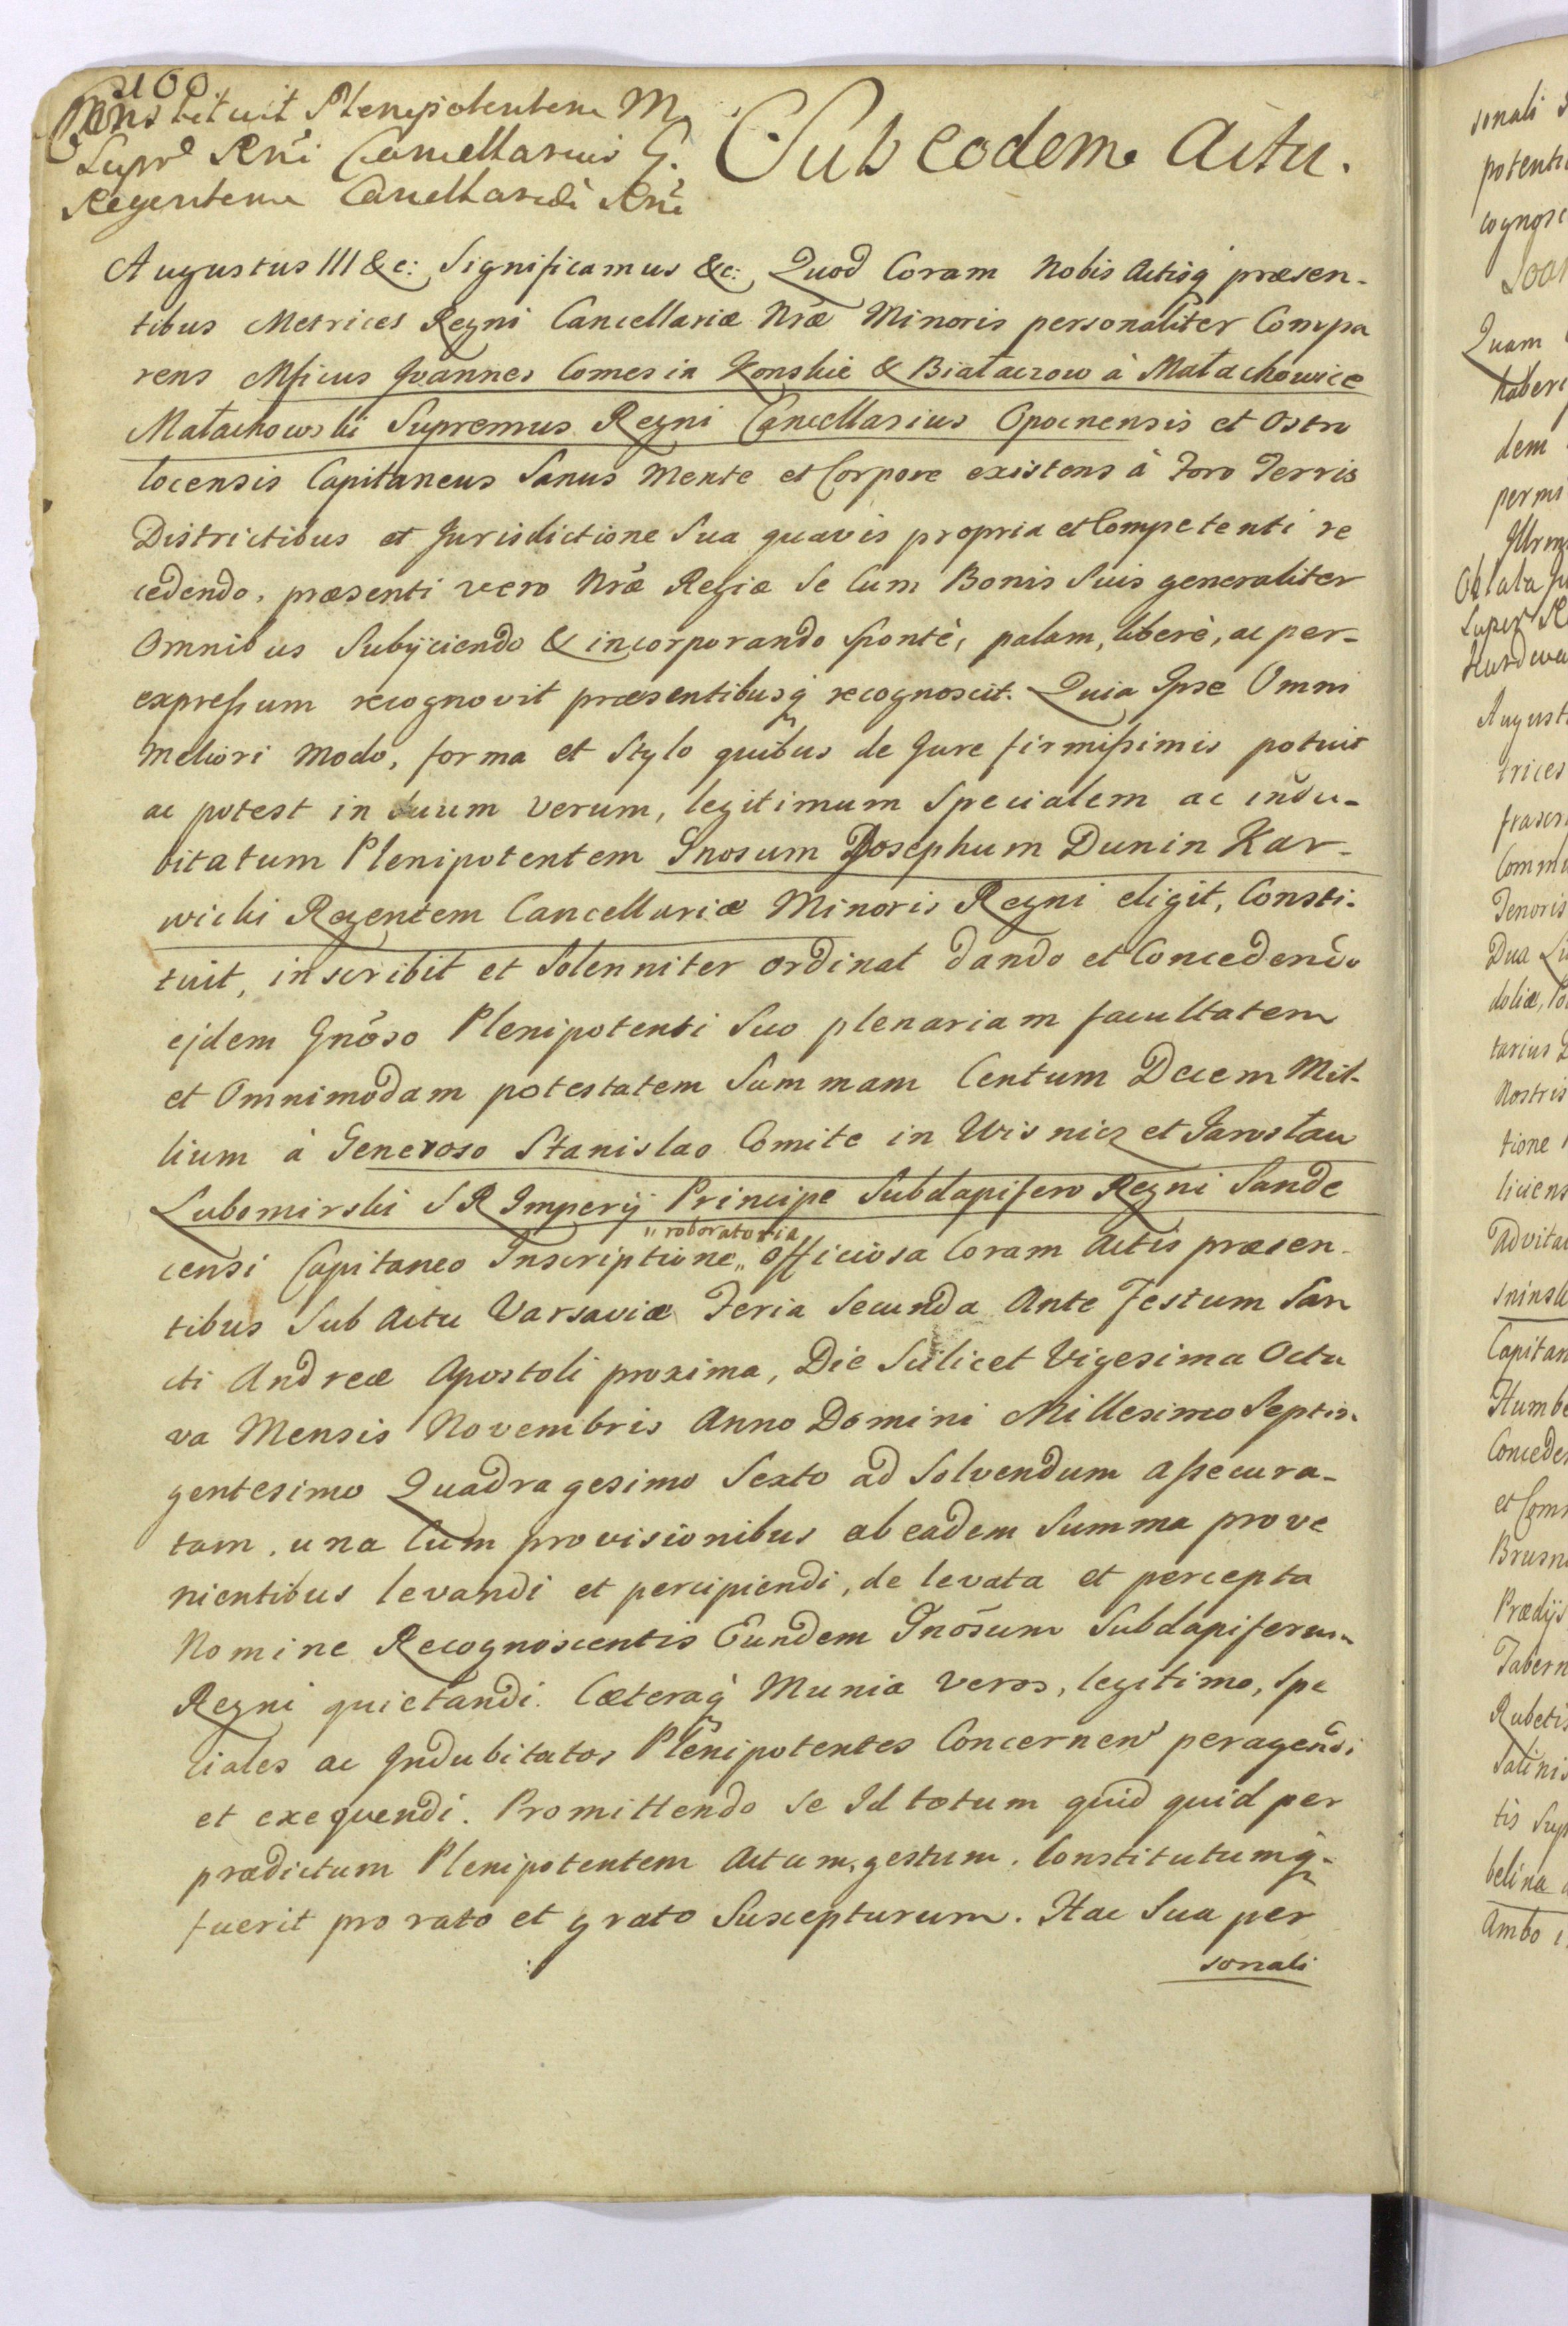 100
Constituit Plenipotentem M.
Supr. Rñi Cancellarius G.
Regentem Cancellariæ Rñi
Sub eodem Actu.
Augustus III &c: Significamus &c: Quod Coram Nobis Actisq́ præsen-
tibus Metrices Regni Cancellariæ Nræ Minoris personaliter Compa
rens Mficus Joannes Comes in Konskie & Białaczow à Małachowice
Małachowski Supremus Regni Cancellarius Opocnensis et Ostro
locensis Capitaneus Sanus Mente et Corpore existens à Foro Terris
Districtibus et Jurisdictione Sua quavis propria et Competenti re
cedendo, præsenti vero Nræ Regiæ Se Cum Bonis Suis generaliter
Omnibus Subijciendo & incorporando Spontè, palam, liberè, ac per-
expressum recognovit præsentibusq́ recognoscit. Quia Ipse Omni
Meliori Modo, forma et Stylo quibus de Jure firmissimis potuit
ac potest in Suum verum, legitimum Specialem ac indu-
bitatum Plenipotentem Gnosum Josephum Dunin Kar-
wicki Regentem Cancellariæ Minoris Regni eligit, Consti-
tuit, inscribit et Solenniter ordinat dando et Concedendo
ejdem Gnõso Plenipotenti Suo plenariam facultatem
et Omnimodam potestatem Summam Centum Decem Mil-
lium à Generoso Stanislao Comite in Wisnicz et Jarosłau
Lubomirski S R Imperij Principe Subdapifero Regni Sande
censi Capitaneo Inscriptione „ roboratoria „ Officiosa Coram Actis præsen-
tibus Sub Actu Varsaviæ Feria Secunda Ante Festum San
cti Andreæ Apostoli proxima, Die Scilicet Vigesima Octa
va Mensis Novembris Anno Domini Millesimo Septin
gentesimo Quadragesimo Sexto ad Solvendum assecura-
tam, una Cum provisionibus ab eadem Summa prove
nientibus levandi et percipiendi, de levata et percepta
Nomine Recognoscentis Eundem Gnõsum Subdapiferum
Regni quietandi. Cæteraq́ Munia veros, legitimo, Spe
ciales ac Indubitatos Plenipotentes Concernen' peragendi
et exequendi. Promittendo Se Id totum quid quid per
prædictum Plenipotentem Actum, gestum, Constitutumq́-
fuerit pro rato et grato Suscepturum. Hac Sua per
sonali